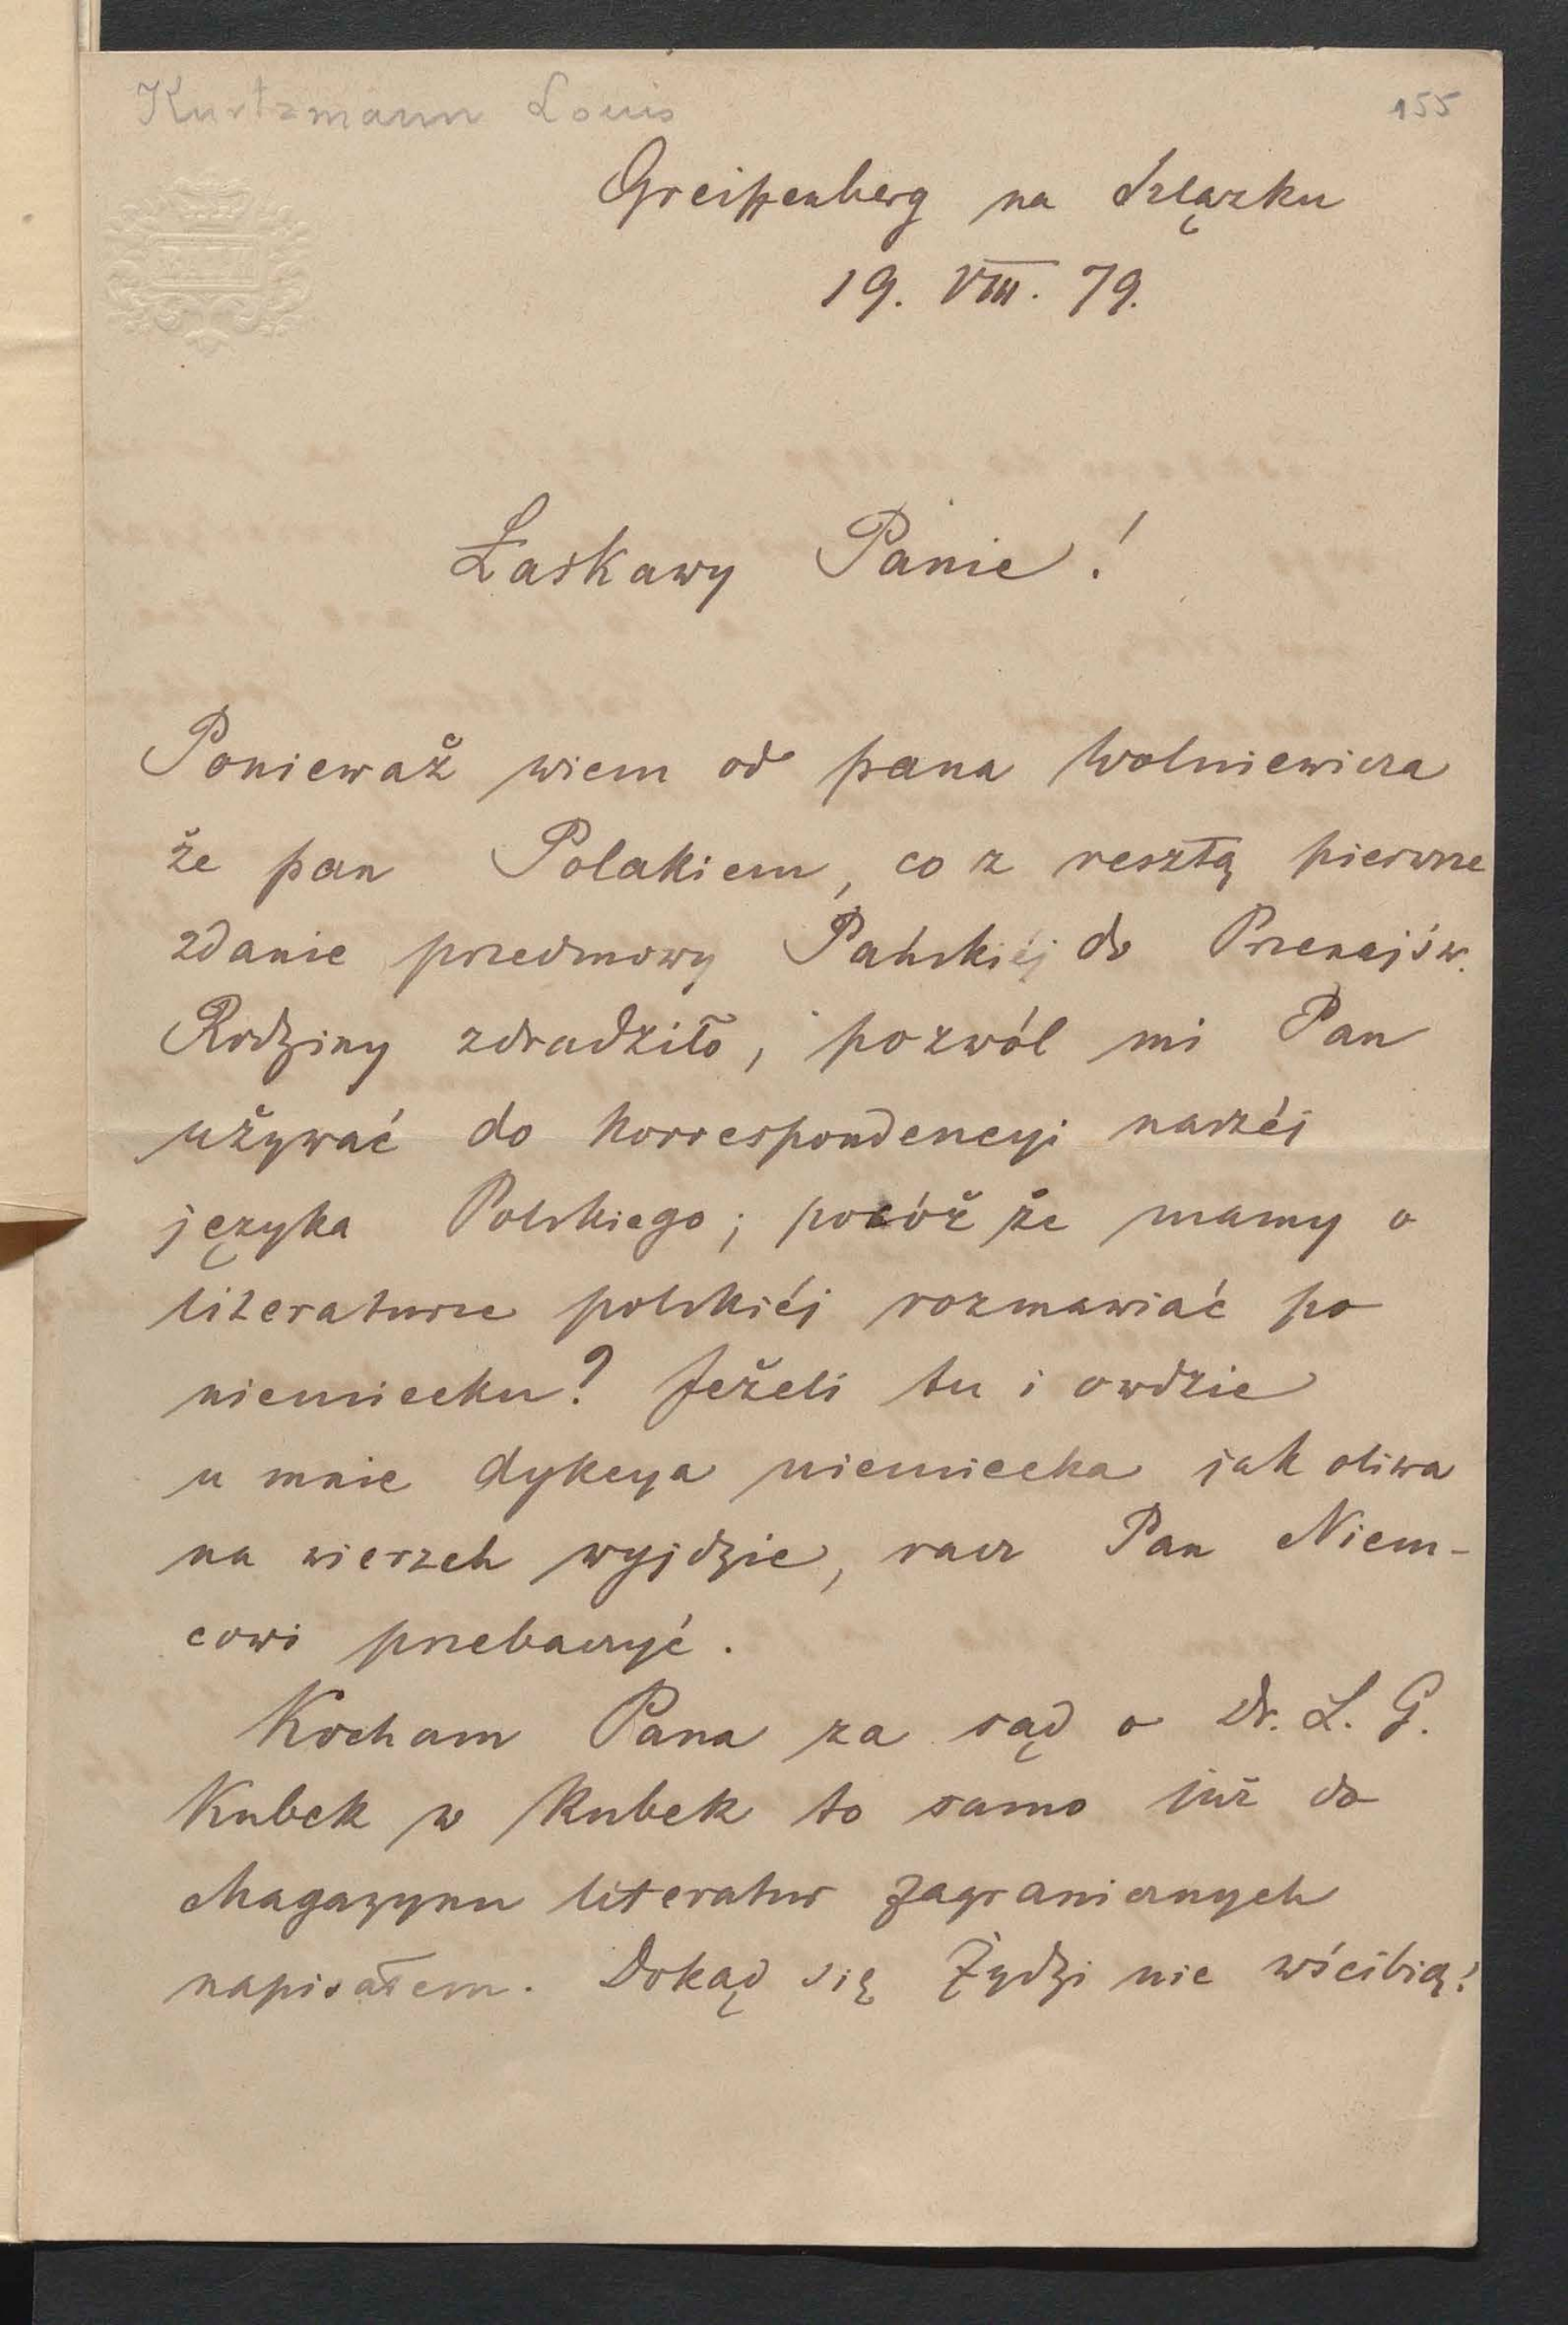 Kurtzmann Louis
155
Greiffenberg na Szlązku
19. VIII. 79.
Łaskawy Panie!
Ponieważ wiem od pana Wolniewicza
że pan Polakiem, co z resztą pierwsze
zdanie przedmowy Pańskiéj do Przenajśw.
Rodziny zdradziło, pozwól mi Pan
używać do korrespondencyi naszéj
języka Polskiego; pocóż że mamy o
literaturze polskiéj rozmawiać po
niemiecku? Jeżeli tu i owdzie
u mnie dykcya niemiecka jak oliwa
na wierzch wyjdzie, racz Pan Niem-
cowi przebaczyć.
Kocham Pana za sąd o Dr. L. G.
Kubek w kubek to samo już do
Magazynu literatur zagranicznych
napisałem. Dokąd się Żydzi nie wścibią!